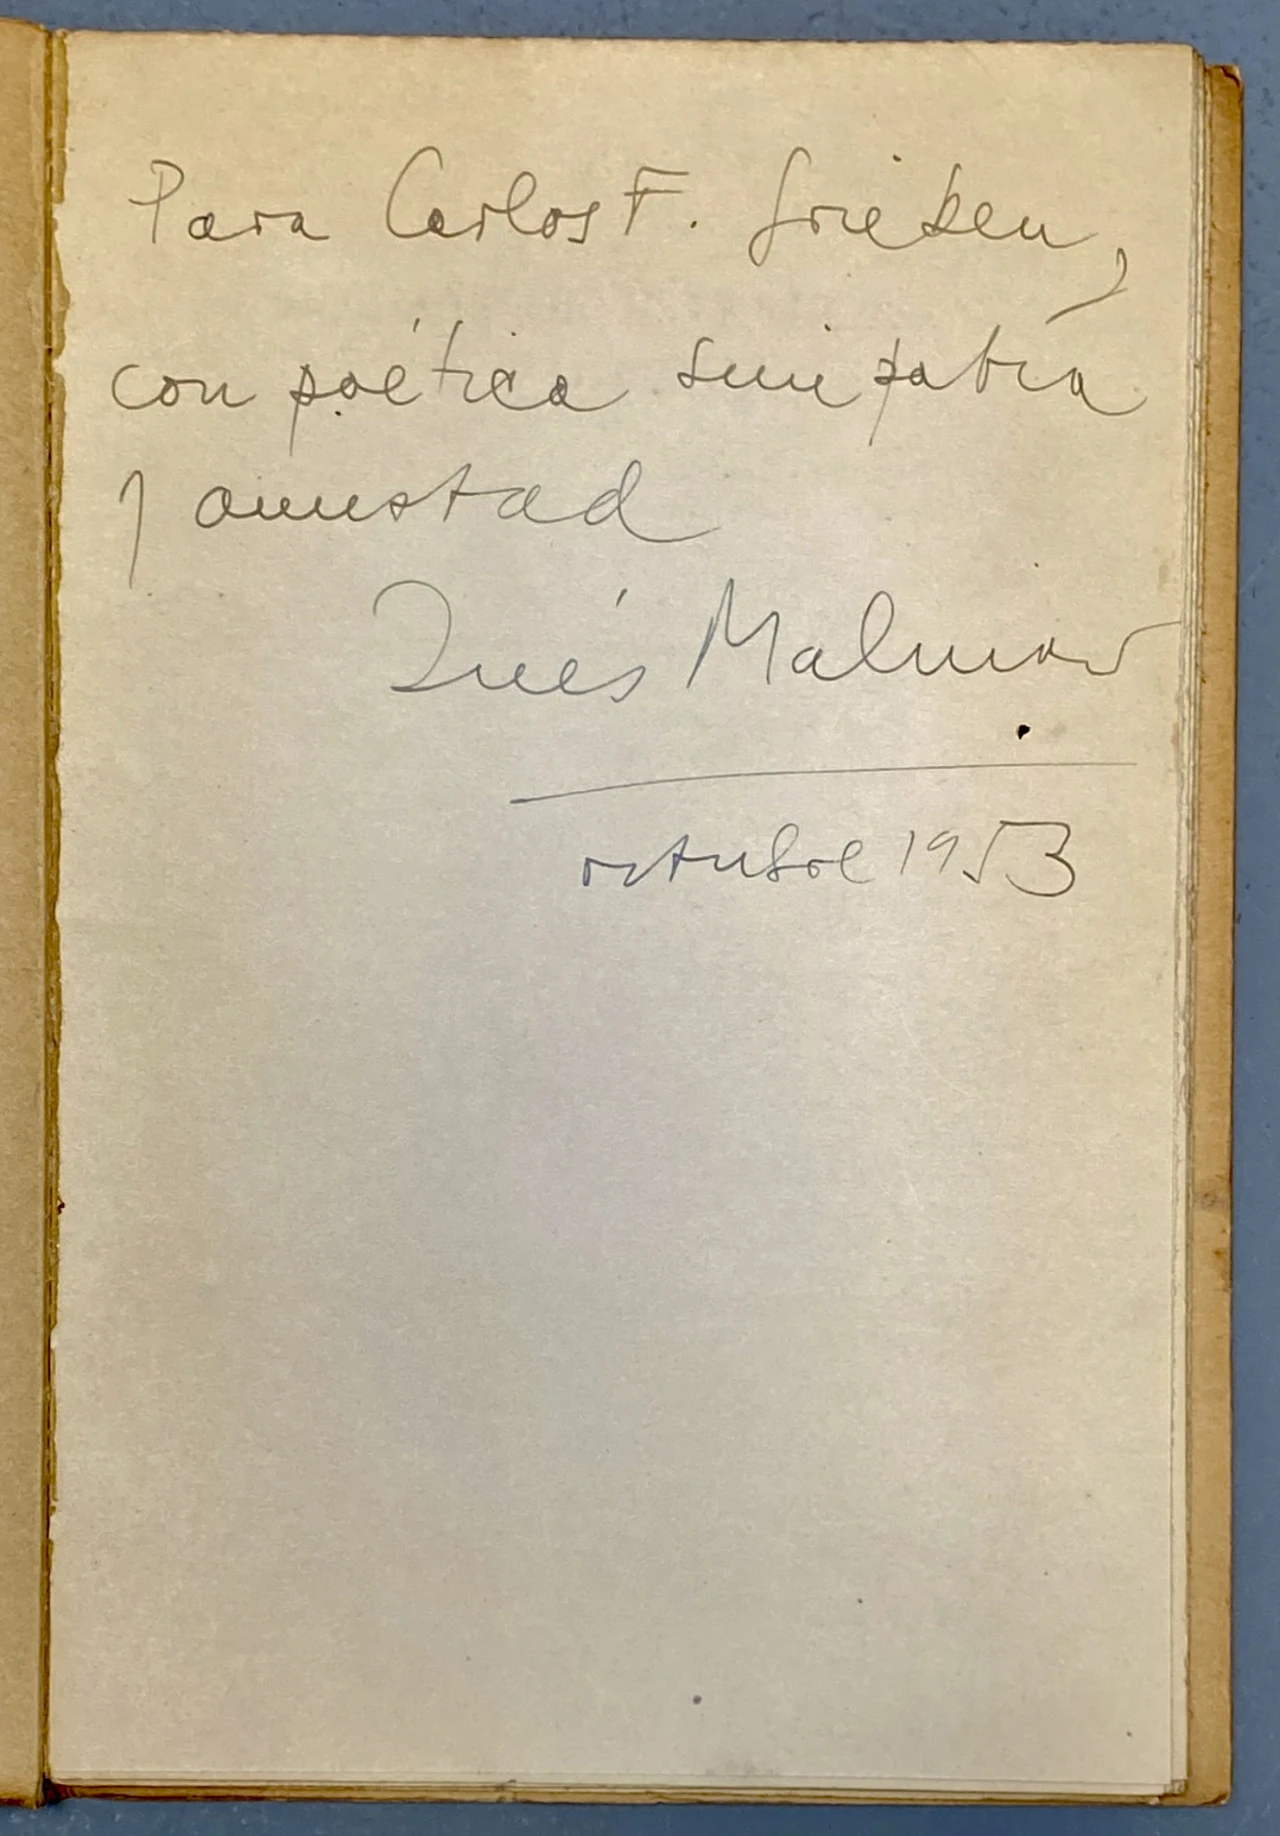 Para Carlos F. Grieben,
con poética simpatía
y amistad
Inés Malinow
octubre 1953